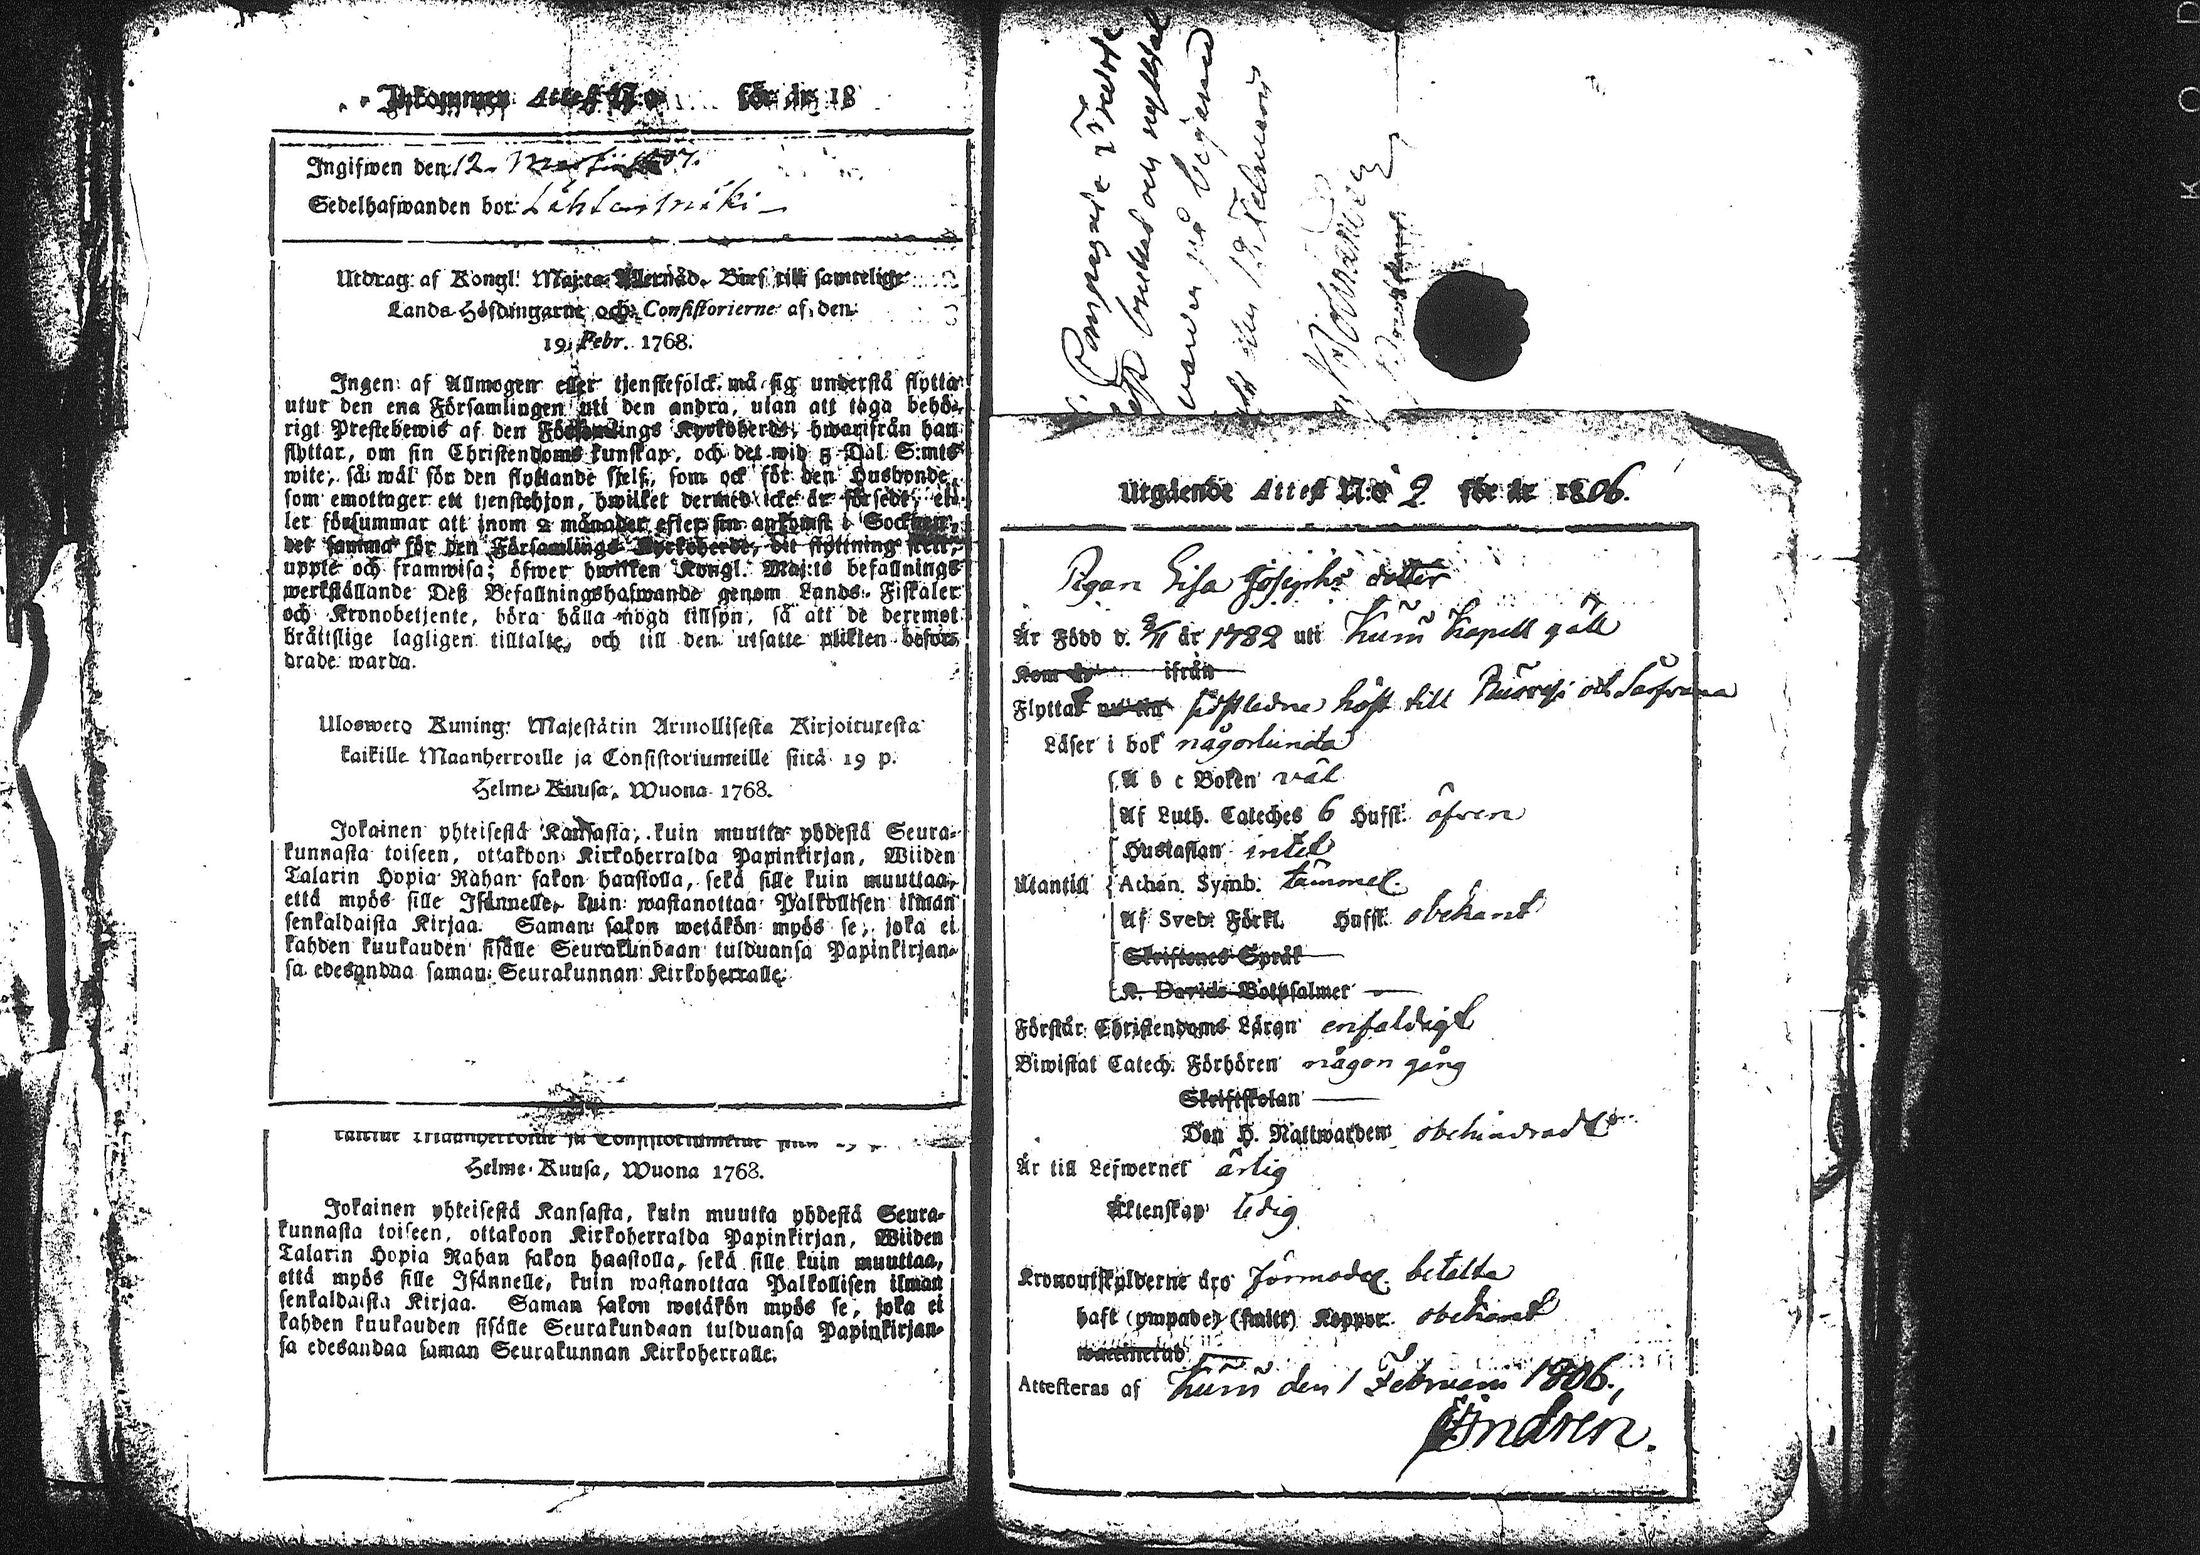 Inkommen Attest N:o för år 18
Ingifwen den 12. Martii 1807.
Sedelhafwanden bor: Lähtenmäki
Utdrag af Kongl. Maj:ts Allernåd. Bref till samtelige
Lands-Höfdingarne och Consistorierne af den
19 Febr. 1768.
Ingen af Allmogen eller tjenstefölck må sig understå flytta
utur den ena Församlingen uti den andra, utan att taga behö-
rigt Prestebewis af den Församlings Kyrkoherde, hwarifrån han
flyttar, om sin Christendoms kunskap, och det wid 5 Dal. S:mts
wite, så wäl för den flyttande sjelf, som ock för den Husbonde,
som emottager ett tjenstehjon, hwilket dermed icke är försedt, el-
ler försummar att inom 2 månader efter sin ankomst i Socknen,
det samma för den Församlings Kyrkoherde, dit flyttning skett,
uppte och framwisa; öfwer hwilken Kongl. Maj:ts befallnings
werkställande Deß Befallningshafwande genom Lands-Fiskaler
och Kronobetjente, böra hålla noga tillsyn, så att de deremot
bråttslige lagligen tilltalte, och till den utsatte plikten befor-
drade warda.
Ulosweto Kuning. Majestätin Armollisesta Kirjoituxesta
kaikille Maanherroille ja Consistoriumeille siitä 19 p.
Helme-Kuusa, Wuona 1768.
Jokainen yhteisestä Kansasta, kuin muutta yhdestä Seura-
kunnasta toiseen, ottakoon Kirkoherralda Papinkirjan, Wiiden
Talarin Hopia Rahan sakon haastolla, sekä sille kuin muuttaa,
että myös sille Isännelle, kuin wastanottaa Palkollisen ilman
senkaldaista Kirjaa. Saman sakon wetäkön myös se, joka ei
kahden kuukauden sisälle Seurakundaan tulduansa Papinkirjan-
sa edesandaa saman Seurakunnan Kirkoherralle.
kaikille Maanherroille ja Consistoriumeille siitä 19 p.
Helme-Kuusa, Wuona 1768.
Jokainen yhteisestä Kansasta, kuin muutta yhdestä Seura-
kunnasta toiseen, ottakoon Kirkoherralda Papinkirjan, Wiiden
Talarin Hopia Rahan sakon haastolla, sekä sille kuin muuttaa,
että myös sille Isännelle, kuin wastanottaa Palkollisen ilman
senkaldaista Kirjaa. Saman sakon wetäkön myös se, joka ei
kahden kuukauden sisälle Seurakundaan tulduansa Papinkirjan-
sa edesandaa saman Seurakunnan Kirkoherralle.
på begäran
den 12 Februarii
Utgående Attest N:o 2 för år 1806.
Pigan Lisa Josephs dotter
Är Född d. 3/11 år 1782 uti Kumo Kapell gäll
Kom år ifrån
Flyttat sistledne höst till och
Läser i bok någorlunda
A b c Boken väl
Af Luth. Cateches 6 Hufst. öfven
Hustaflan intet
Utantill Athan. Symb. tämmel.
Af Sveb. Förkl. Hufst. obekant
Skriftenes Språk
K. Davids Botpsalmer
Förstår Christendoms Läran enfaldigt
Biwistat Catech. Förhören någon gång
Skriftskolan
Den H. Nattwarden obehindradt
Är till Lefwernet ärlig
Äktenskap ledig
Kronoutskylderne äro förmodel. betalta
haft (ympade) (smitt) Koppor obekant
waccinerad
Attesteras af den 1 Februarii 1806.
Indrén.
KOD